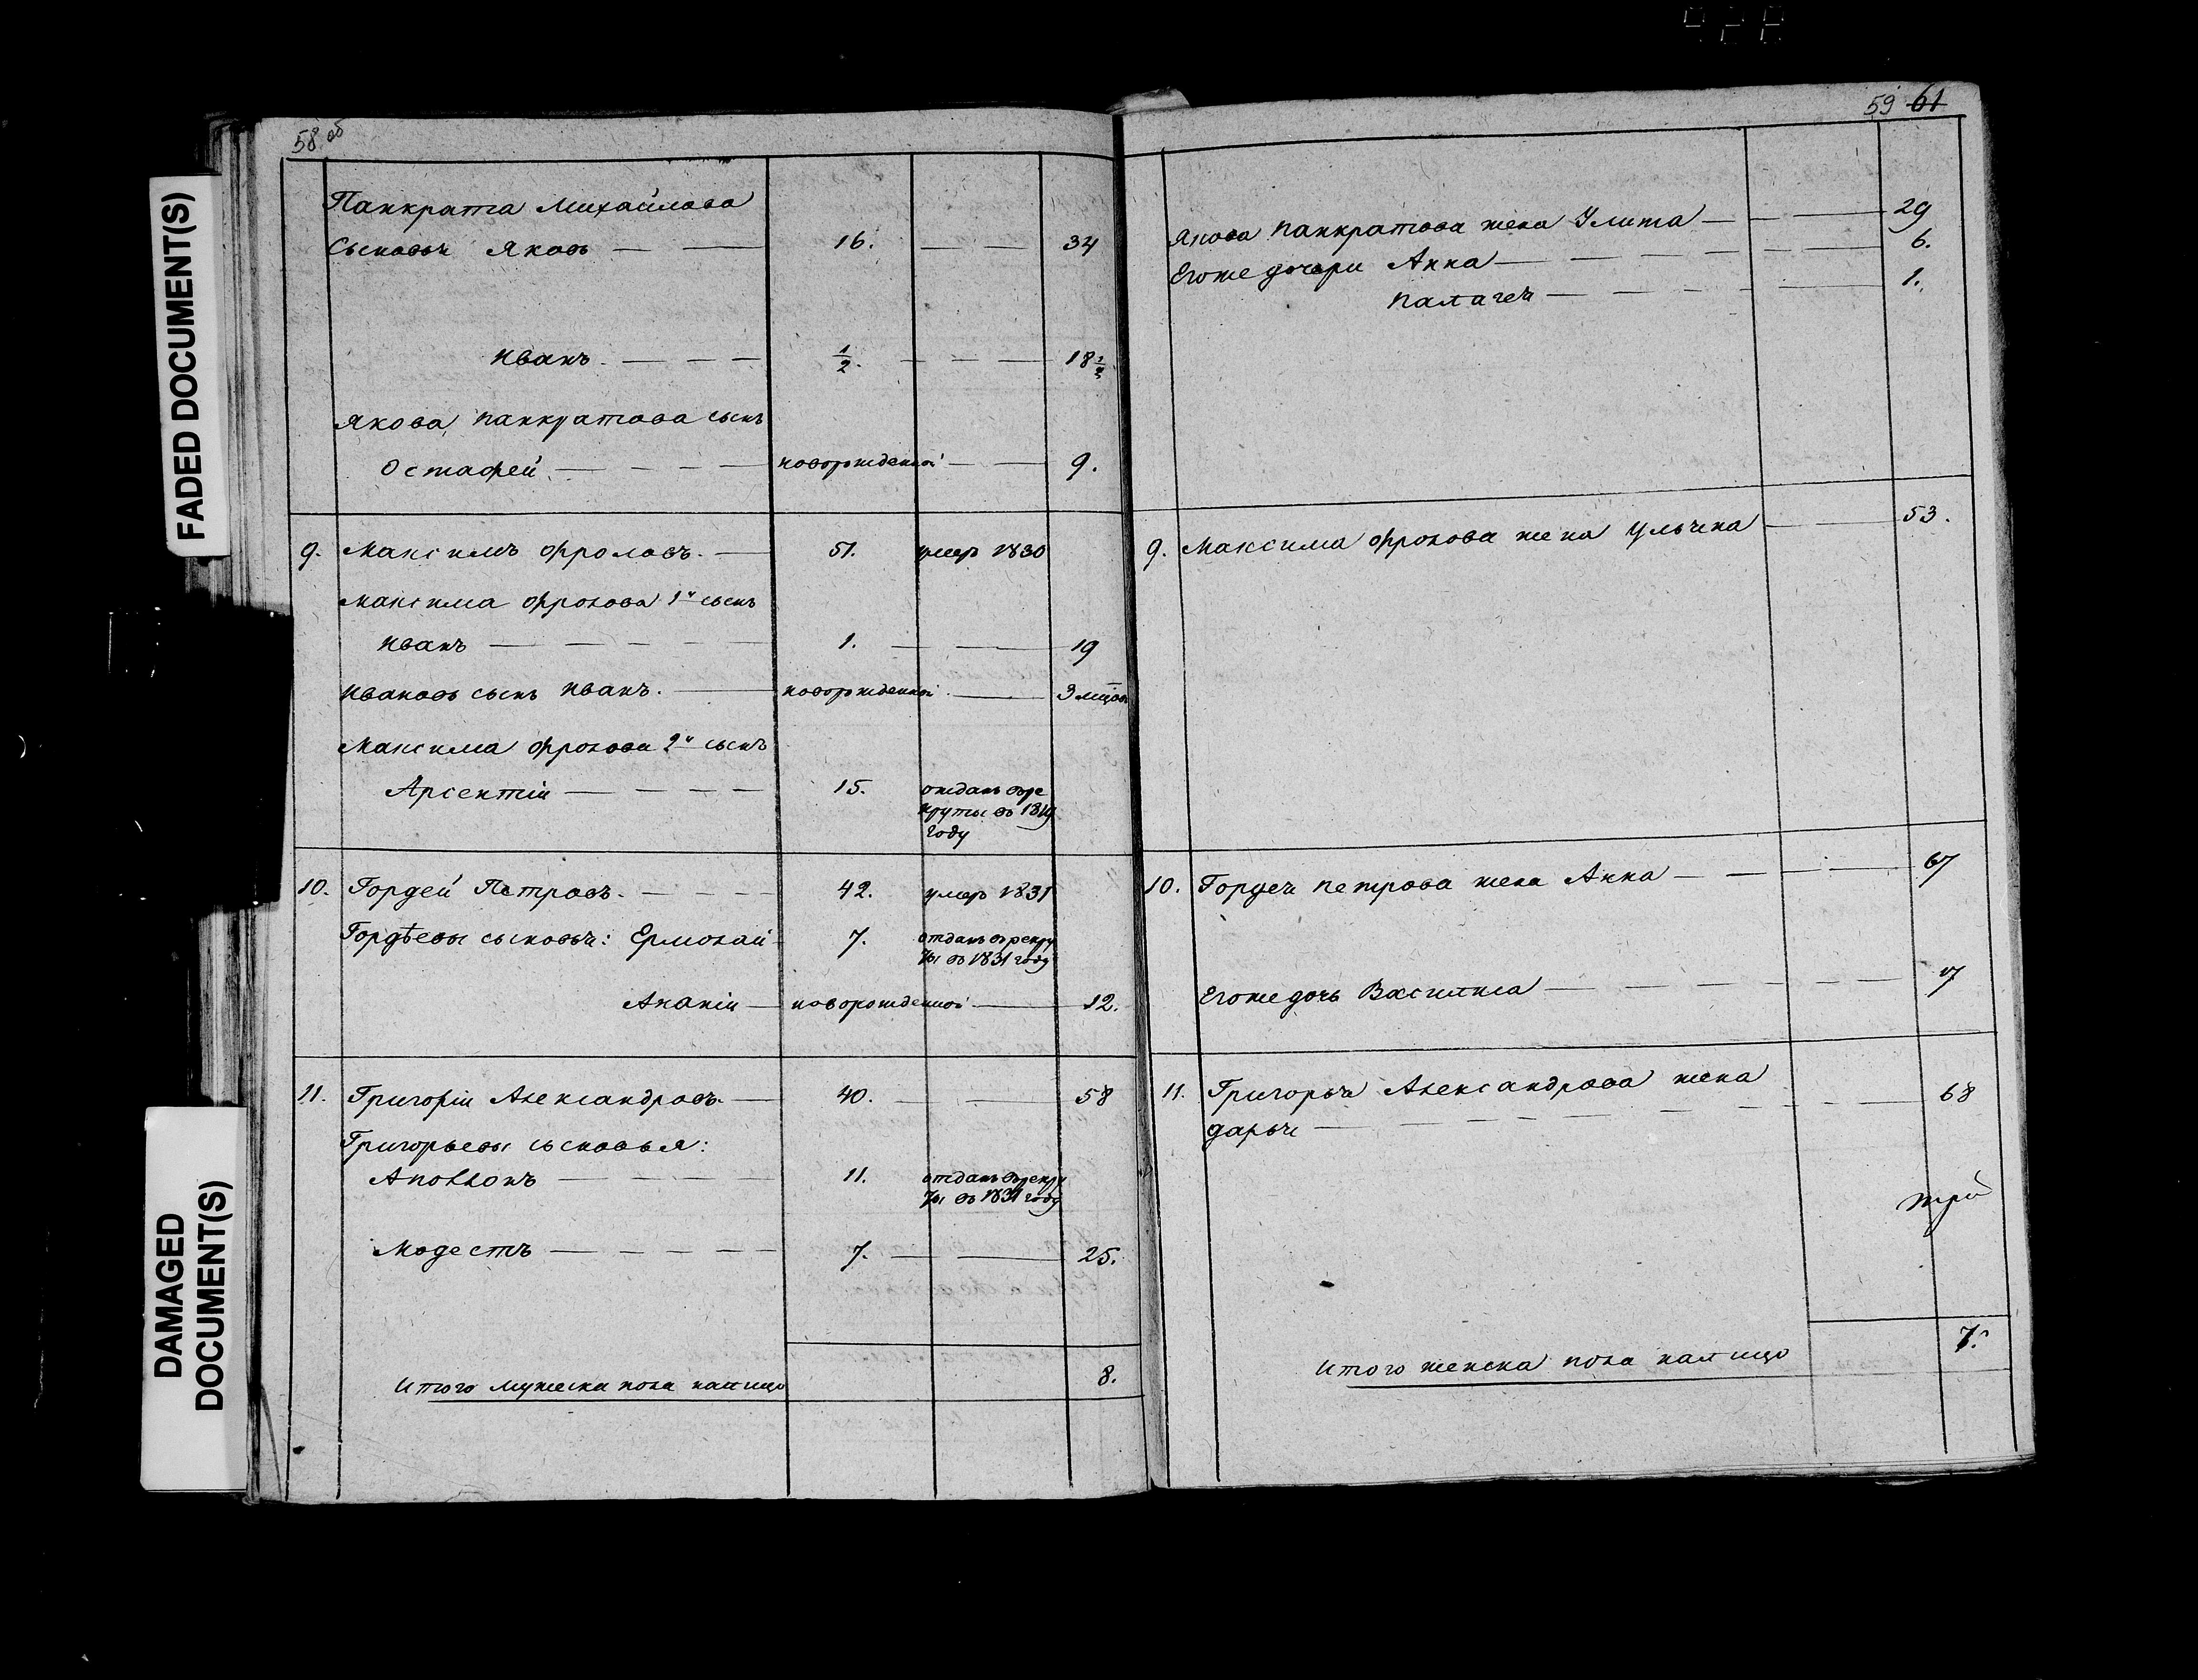 58 об
Панкрата Михайлова
Сыновья Яковъ — — 16. — — 34
Иванъ. — — — 1/2. — — — 18 1/2
Якова Панкратова сынъ
Остафей — — — — новорожденной — — 9.
9. Максимъ Фроловъ. — 51. умеръ 1830
Максима Фролова 1й сынъ
Иванъ — — — — 1. — — 19
Ивановъ сынъ Иванъ. — новорожденной — 3 мцовъ
Максима Фролова 2й сынъ
Арсентій — — — — 15. отданъ въ ре
круты въ 1819
году
10. Гордей Петровъ. — — — 42. умеръ 1831
Гордѣевы сыновья: Ермолай 7. отданъ в рекру
ты въ 1831 году
Ананій — новорожденной — 12.
11. Григорій Александровъ. — 40. — — 58
Григорьевы сыновья:
Аполлонъ — — — — 11. отданъ в рекру
ты въ 1831 году
Модестъ — — — — — 7. — — 25.
Итого мужеска пола налицо 8.
59 61
Якова Панкратова жена Улита — — — 29
Егоже дочери Анна — — — — — 6.
Палагея — — — — — 1.
9. Максима Фролова жена Ульяна — — 53.
10. Гордея Петрова жена Анна — — — — 67
Егоже дочь Василиса — — — — — — 17
11. Григорья Александрова жена
Дарья — — — — — — — — 68
три
Итого женска пола налицо 7.
FADED DOCUMENT(S)
DAMAGED
DOCUMENT(S)